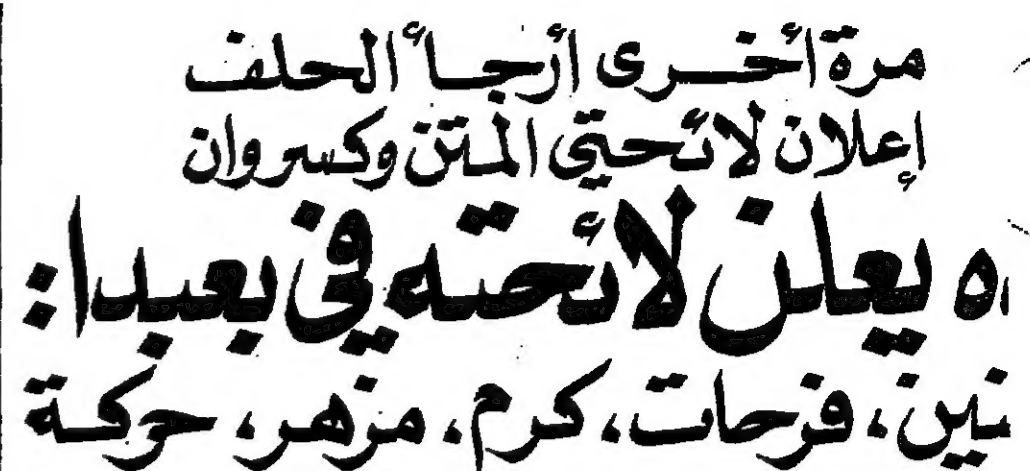 مرة أخرى أرجأ الحلف
إعلان لائحتي المتن وكسروان
ه يعلن لائحته في بعبدا:
نين، فرحات، كرم، مزهر، حركة